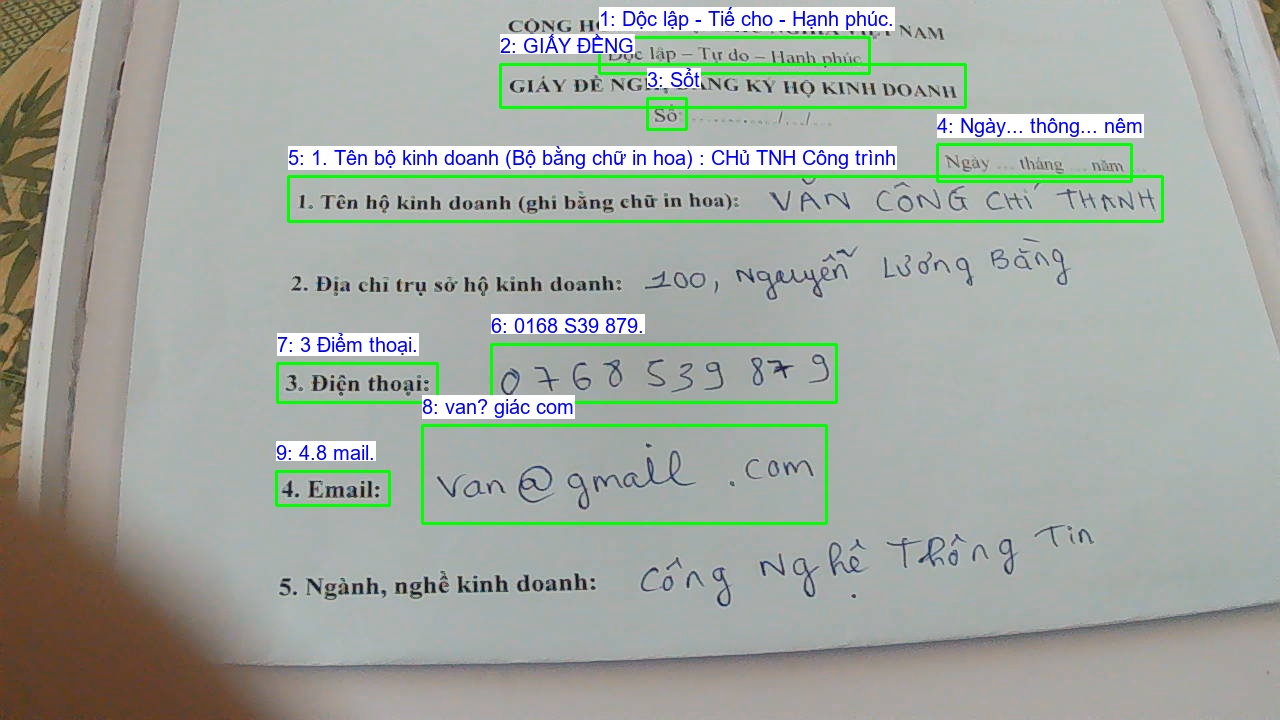 CỘNG H
NAM
1: Dộc lập - Tiế cho - Hạnh phúc.
2: GIẤY ĐỀNG
Độc lập – Tự do – Hạnh phúc
3: Sổt
GIẤY ĐỀ NGHỊ ĐĂNG KÝ HỘ KINH DOANH
Số: ............/.../...
4: Ngày... thông... nêm
Ngày ... tháng ... năm
5: 1. Tên bộ kinh doanh (Bộ bằng chữ in hoa) : CHủ TNH Công trình
1. Tên hộ kinh doanh (ghi bằng chữ in hoa): VĂN CÔNG CHÍ THANH
2. Địa chỉ trụ sở hộ kinh doanh: 100, Nguyễn Lương Bằng
6: 0168 S39 879.
7: 3 Điểm thoại.
3. Điện thoại: 0768 539 879
8: van? giác com
9: 4.8 mail.
4. Email: van@gmail .com
5. Ngành, nghề kinh doanh: Công Nghệ Thông Tin